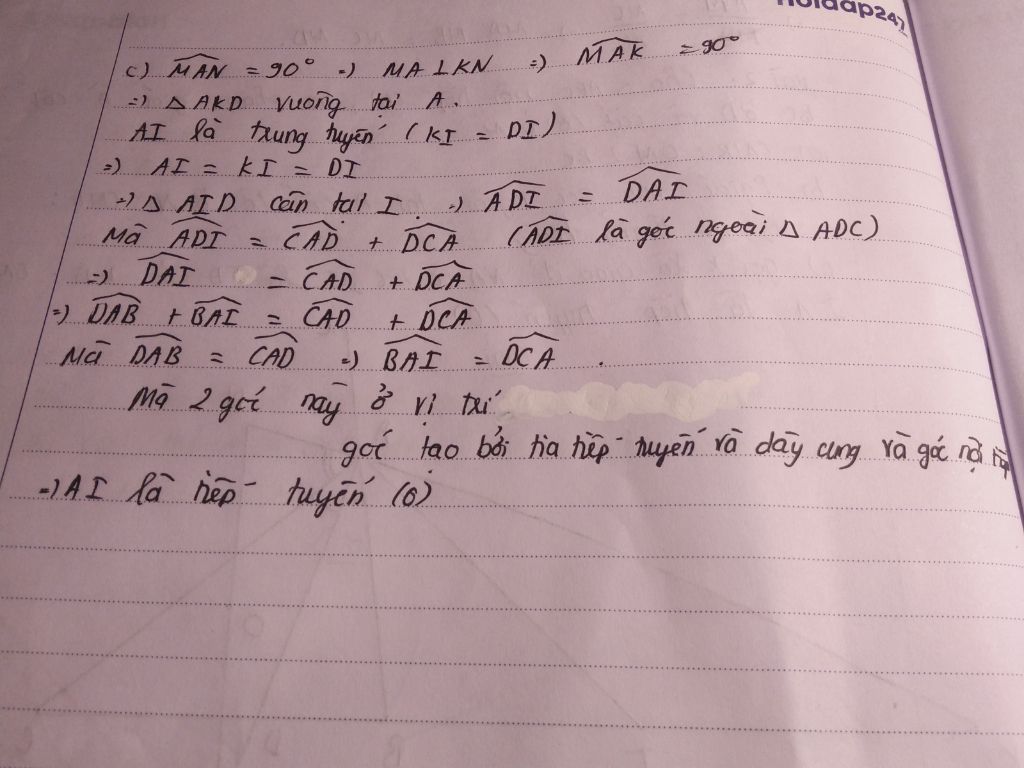 hoidap247
c) MAN = 90° => MA ⊥ KN => MAK = 90°
=> Δ AKD vuông tại A.
AI là trung tuyến (KI = DI)
=> AI = KI = DI
=> Δ AID cân tại I. => ADI = DAI
Mà ADI = CAD + DCA (ADI là góc ngoài Δ ADC)
=> DAI = CAD + DCA
=> DAB + BAI = CAD + DCA
Mà DAB = CAD => BAI = DCA.
Mà 2 góc này ở vị trí
góc tạo bởi tia tiếp tuyến và dây cung và góc nội tiếp
=> AI là tiếp tuyến (O)